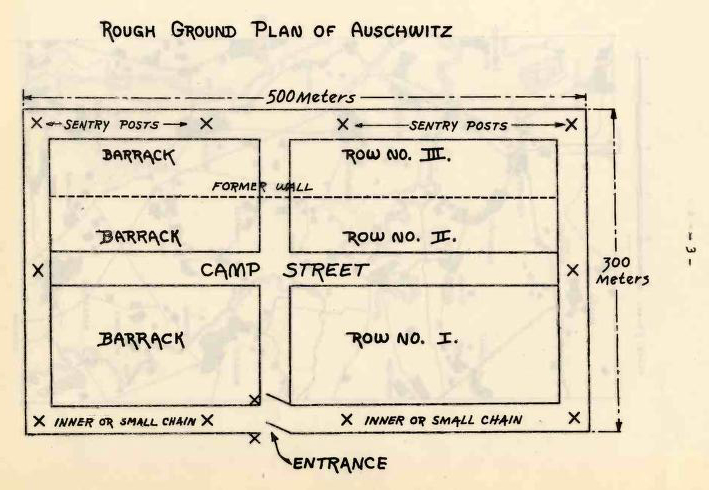 ROUGH GROUND PLAN OF AUSCHWITZ
500 Meters
SENTRY POSTS SENTRY POSTS
BARRACK ROW NO. III.
FORMER WALL
BARRACK ROW NO. II.
CAMP STREET
300
Meters
- 3 -
BARRACK ROW NO. I.
INNER OR SMALL CHAIN INNER OR SMALL CHAIN
ENTRANCE